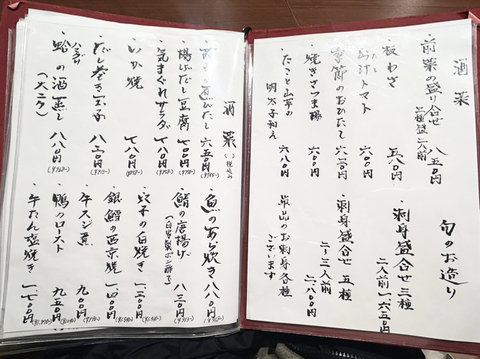 酒菜
前菜の盛り合せ 八五〇円
三種盛 二人前
・板わさ 五八〇円
・出汁トマト 六〇〇円
・季節のおひたし 六〇〇円
・焼きさつま揚 六〇〇円
・たこと山芋の
明太子和え 六八〇円
旬のお造り
・刺身盛合せ 三種
二人前 一六五〇円
・刺身盛合せ 五種
二〜三人前 二八〇〇円
単出のお刺身各種
ございます
酒菜
六五〇円
・揚げだし豆腐 七〇〇円
・気まぐれサラダ 七八〇円
・いか焼 七八〇円
・だし巻き玉子 八三〇円
・蛤の酒蒸し 八八〇円
ハマグリ
・魚のあら炊き 八八〇円
・鯖の唐揚げ 八三〇円
・穴子の白焼き 一二〇〇円
・銀鱈の西京焼 一一〇〇円
・牛スジ煮 九〇〇円
・鴨のロースト 九五〇円
・牛たん塩焼き 一七〇〇円